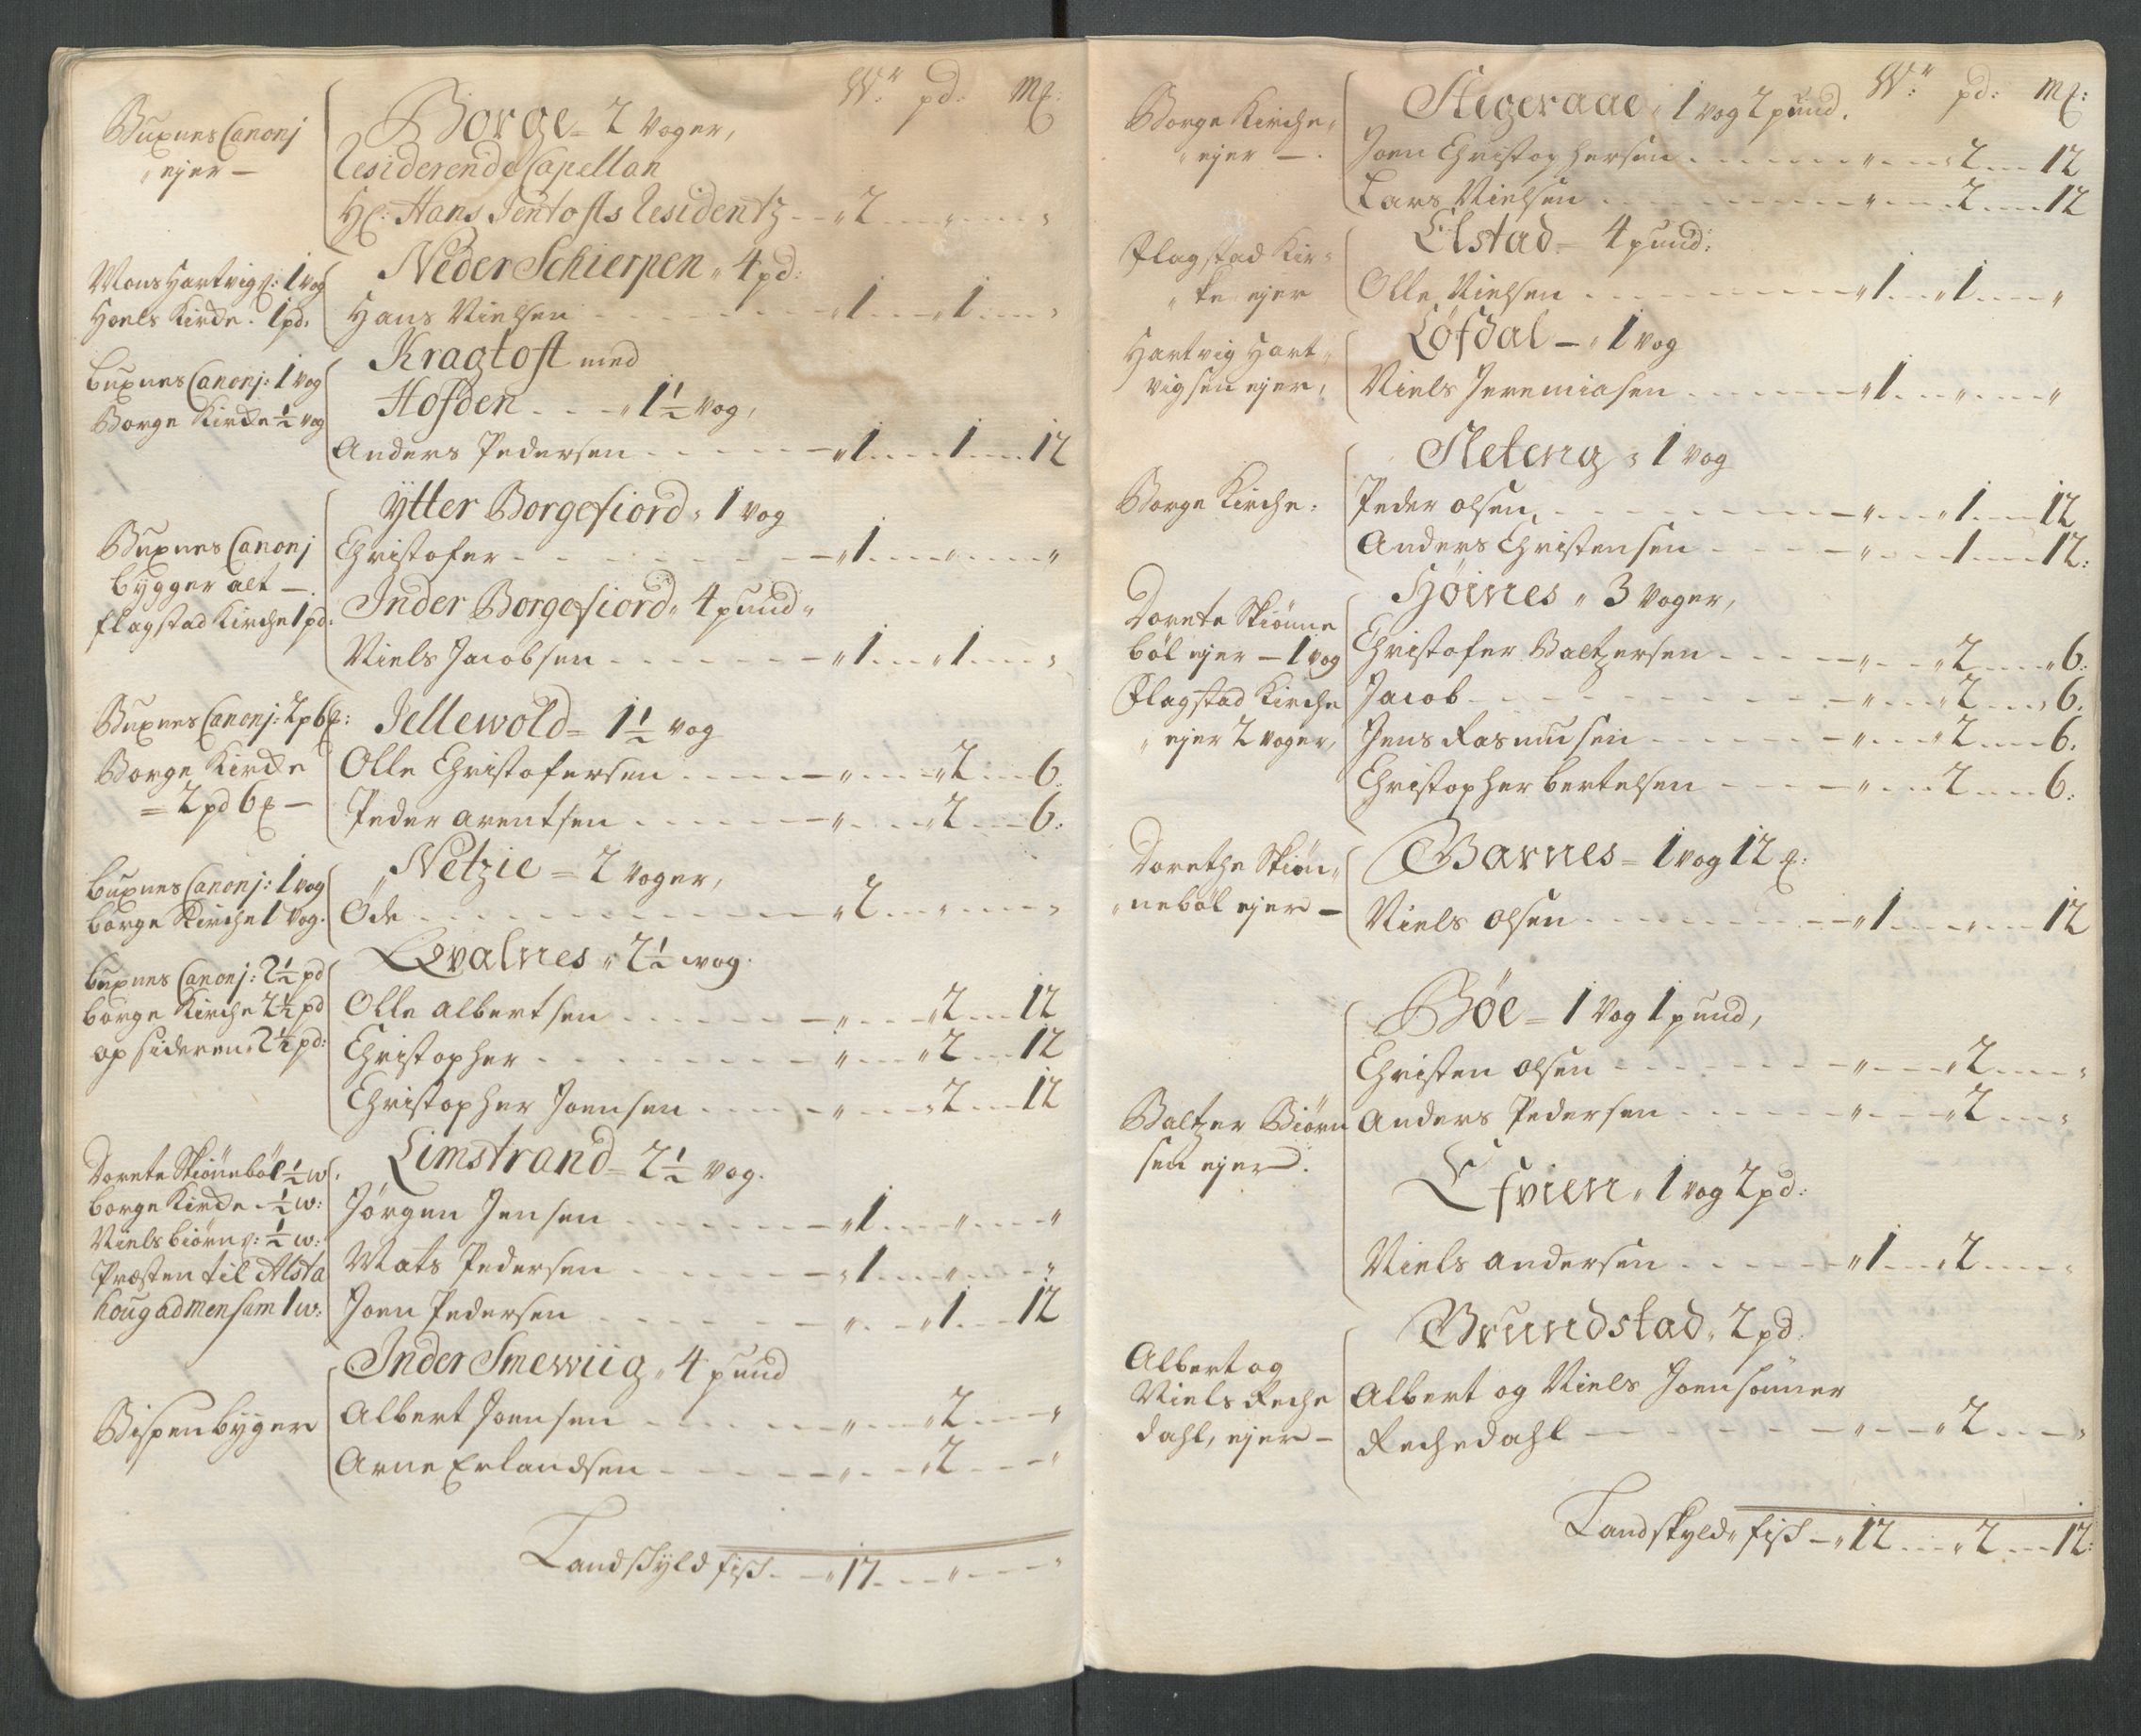 W: pd: M:
Buxnes Canonj
ejer —
Borge = 2 Voger,
Residerende Capellan
Hr: Hans Jentofts Residentz - - 2 - - " - - "
Mons Hartvigs: 1 Vog
Hoels Kirche. 1 pd.
Neder Schierpen " 4 pd:
Hans Nielsen - - - 1 - - 1 - - "
Buxnes Canonj: 1 Vog
Borge Kirche ½ vog
Kragtoft med
Hofden - - " 1½ Vog,
Anders Pedersen - - - 1 - - 1 - - 12
Buxnes Canonj
bygger alt —.
flagstad Kirche 1 pd.
Ytter Borgefiord " 1 Vog
Christofer - - - 1 - - " - - "
Inder Borgefiord " 4 pund "
Niels Jacobsen - - - 1 - - 1 - - "
Buxnes Canonj: 2 p 6
Borge Kirche
= 2 pd 6 —
Jellewold = 1½ vog
Olle Christofersen - - - " - - 2 - - 6.
Peder arentsen - - - " - - 2 - - 6:
buxnes Canonj: 1 vog
borge Kirche 1 Vog.
Netzie = 2 Voger,
Øde - - - 2 - - " - - "
buxnes Canonj: 2½ pd
borge Kirche 2½ pd
opsideren 2½ pd:
Qvalnes " 2½ wog.
Olle albertsen - - - " - - 2 - - 12
Christopher - - - " - - 2 - - 12
Christopher Joensen - - - " - - 2 - - 12
Dorete Skiönebøl ½ w.
borge Kirche. ½ w:
Niels biørns: ½ w:
Præsten til Alsta
houg ad mensam 1 w:
Limstrand = 2½ Vog.
Jørgen Jensen - - - 1 - - " - - "
Mats Pedersen - - - 1 - - " - - "
Joen Pedersen - - - " - - 1 - - 12
Bispen bygger
Inder Smewiig " 4 pund
Albert Joensen - - - " - - 2 - - "
Arne Erlandsen - - - " - - 2 - - "
Landschyld fisch - - 17 - - " - - "
W: pd: M:
Borge Kirche
ejer —.
Stegeraae " 1 vog 2 pund.
Joen Christophersen - - - " - - 2 - - 12
Lars Nielsen - - - " - - 2 - - 12
Flagstad Kir=
ke ejer
Elstad = 4 pund:
Olle Nielsen - - - 1 - - 1 - - "
Hartvig Hart
vigsen ejer,
Löfdal — " 1 Vog
Niels Jeremiasen - - - 1 - - " - - "
Borge Kirche:
Sleteng " 1 Vog
Peder olsen - - - " - - 1 - - 12
Anders Christensen - - - " - - 1 - - 12:
Dorete Skiönne
böl ejer — 1 vog
Flagstad Kirche
ejer 2 voger,
Höines " 3 Voger,
Christofer Baltzersen - - - " - - 2 - - 6:
Jacob - - - " - - 2 - - 6.
Jens Rasmusen - - - " - - 2 - - 6.
Christopher bertelsen - - - " - - 2 - - 6:
Dorethe Skiön=
neböl ejer —
Barnes = 1 vog 12
Niels olsen - - - 1 - - " - - 12
Baltzer Biörn
sen ejer.
Böe = 1 Vog 1 pund,
Christen olsen - - - " - - 2 - - "
Anders Pedersen - - - " - - 2 - - "
Efvien " 1 vog 2 pd:
Niels andersen - - - 1 - - 2 - - "
Albert og
Niels Reche
dahl, ejer —
Brundstad " 2 pd.
Albert og Niels Joensönner
Rechedahl - - - " - - 2 - - "
Landskyld " fisch — 12 - - 2 - - 12: